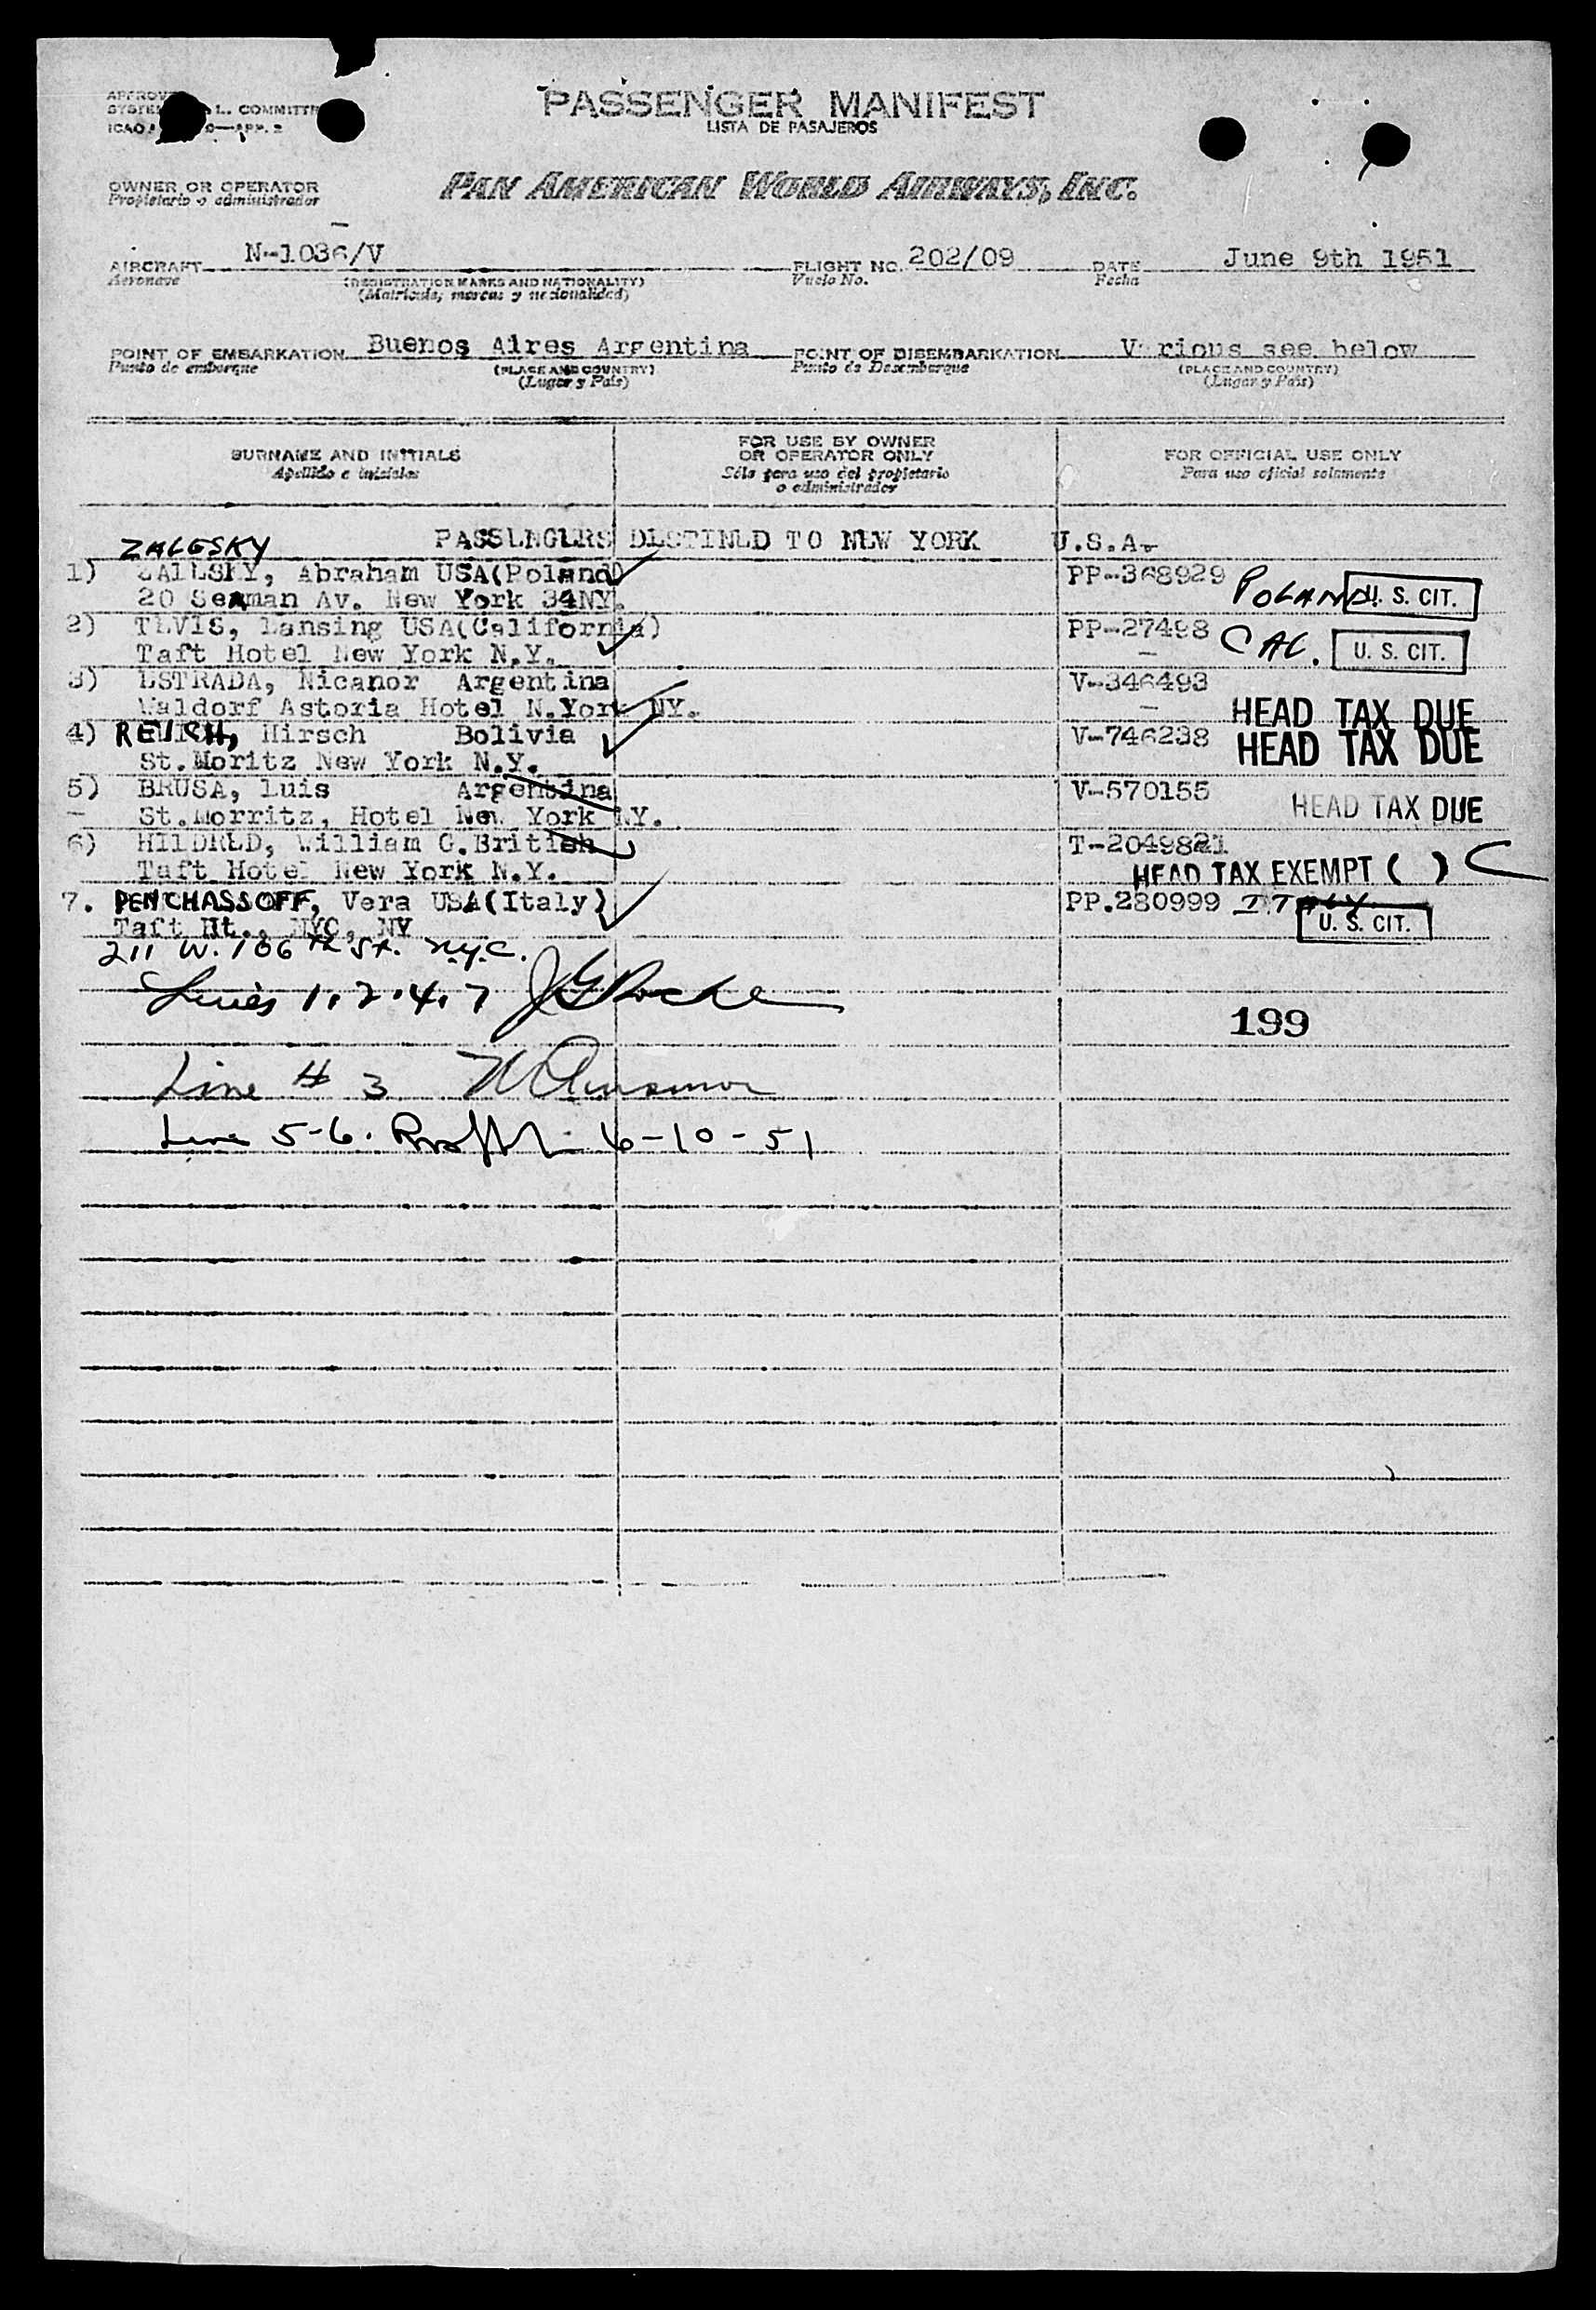 PASSENGER MANIFEST
LISTA DE PASAJEROS
OWNER OR OPERATOR
Propietario o administrador
PAN AMERICAN WORLD AIRWAYS, INC.
AIRCRAFT N-1036/V FLIGHT NO. 202/09 DATE June 9th 1951
Aeronave (REGISTRATION MARKS AND NATIONALITY) Vuelo No. Fecha
(Matrícula, marcas y nacionalidad)
POINT OF EMBARKATION Buenos Aires Argentina POINT OF DISEMBARKATION V rious see below
Punto de embarque (PLACE AND COUNTRY) Punto de Desembarque (PLACE AND COUNTRY)
(Lugar y País) (Lugar y País)
SURNAME AND INITIALS FOR USE BY OWNER OR OPERATOR ONLY FOR OFFICIAL USE ONLY
Apellido e iniciales Sólo para uso del propietario o administrador Para uso oficial solamente
PASSENGERS DESTINED TO NEW YORK U.S.A.
ZALESKY
1) ZALESKY, Abraham USA(Poland) PP-368929 POLAND U. S. CIT.
20 Seaman Av. New York 34NY.
2) TEVIS, Lansing USA(California) PP-27498 CAL. U. S. CIT.
Taft Hotel New York N.Y.
3) ESTRADA, Nicanor Argentina V-346493
Waldorf Astoria Hotel N.York NY. HEAD TAX DUE
4) REUICH, Hirsch Bolivia V-746238 HEAD TAX DUE
St.Moritz New York N.Y.
5) BRUSA, Luis Argentina V-570155 HEAD TAX DUE
St.Morritz, Hotel New York NY.
6) HILDRED, William G.British T-2049821
Taft Hotel New York N.Y. HEAD TAX EXEMPT ( )
7. PENCHASSOFF, Vera USA(Italy) PP.280999 ITALY U. S. CIT.
Taft Ht., NYC, NY
211 W. 106th St. N.Y.C.
Lines 1.2.4.7 J G Roche
199
Line # 3
Line 5-6. 6-10-51